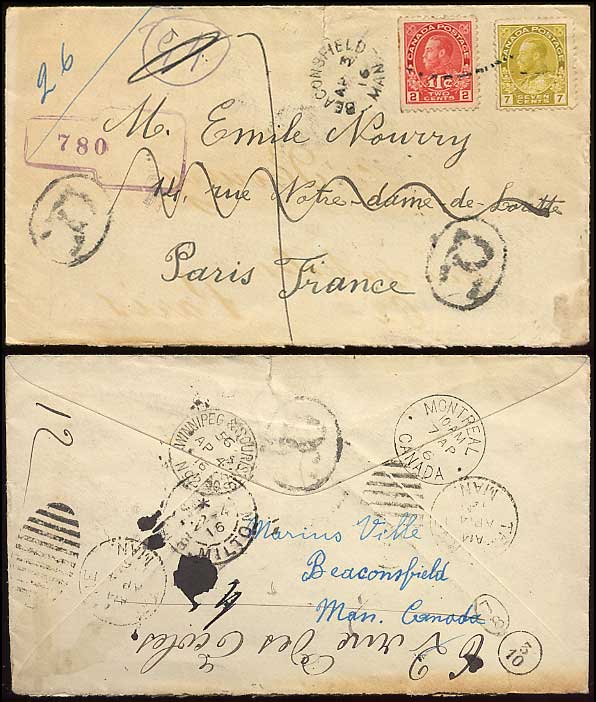 26
780
BEACONSFIELD
AP 3
16
MAN
CANADA POSTAGE
1TC
2 TWO CENTS 2
CANADA POSTAGE
7 SEVEN CENTS 7
M. Emile Nourry
14, rue Notre-dame-de-Lorette
Paris France
R
R
12
WINNIPEG & SOURIS
AP 4
16
R
MONTREAL
10 AM
7 AP
16
CANADA
MAN.
MILTON
16
MAN.
AM
Marius Ville
Beaconsfield
Man. Canada
62 rue des Ecoles.
3
10